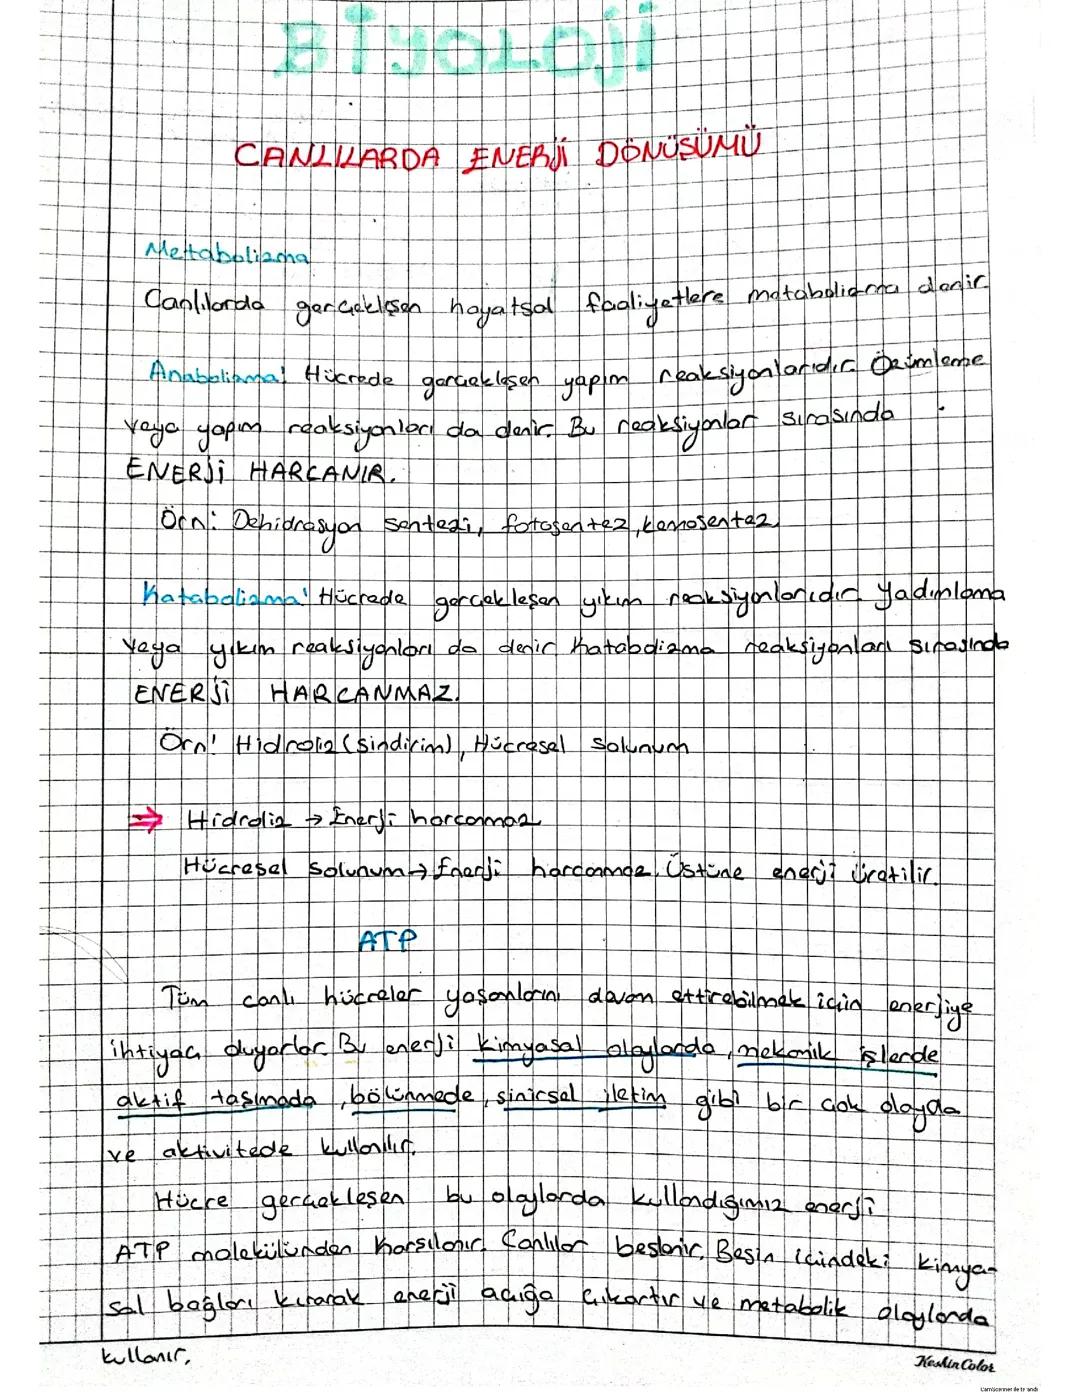 BİYOLOJİ
CANLILARDA ENERJİ DÖNÜŞÜMÜ
Metabolizma
Canlılarda gerçekleşen hayatsal faaliyetlere metabolizma denir.
Anabolizma: Hücrede gerçekleşen yapım reaksiyonlarıdır. Özümleme
veya yapım reaksiyonları da denir. Bu reaksiyonlar sırasında
ENERJİ HARCANIR.
Örn: Dehidrasyon sentezi, fotosentez, kemosentez
Katabolizma: Hücrede gerçekleşen yıkım reaksiyonlarıdır. Yadımlama
veya yıkım reaksiyonları da denir. Katabolizma reaksiyonları sırasında
ENERJİ HARCANMAZ.
Örn: Hidroliz (sindirim), Hücresel solunum
⇒ Hidroliz → Enerji harcanmaz
Hücresel solunum → Enerji harcanmaz. Üstüne enerji üretilir.
ATP
Tüm canlı hücreler yaşamlarını devam ettirebilmek için enerjiye
ihtiyacı duyarlar. Bu enerji kimyasal olaylarda, mekanik işlerde
aktif taşımada, bölünmede, sinirsel iletim gibi bir çok olayda
ve aktivitede kullanılır.
Hücre gerçekleşen bu olaylarda kullandığımız enerji
ATP molekülünden karşılanır. Canlılar beslenir. Besin içindeki kimya-
sal bağları kırarak enerji açığa çıkartır ve metabolik olaylarda
kullanır.
KeskinColor
CamScanner ile tarandı